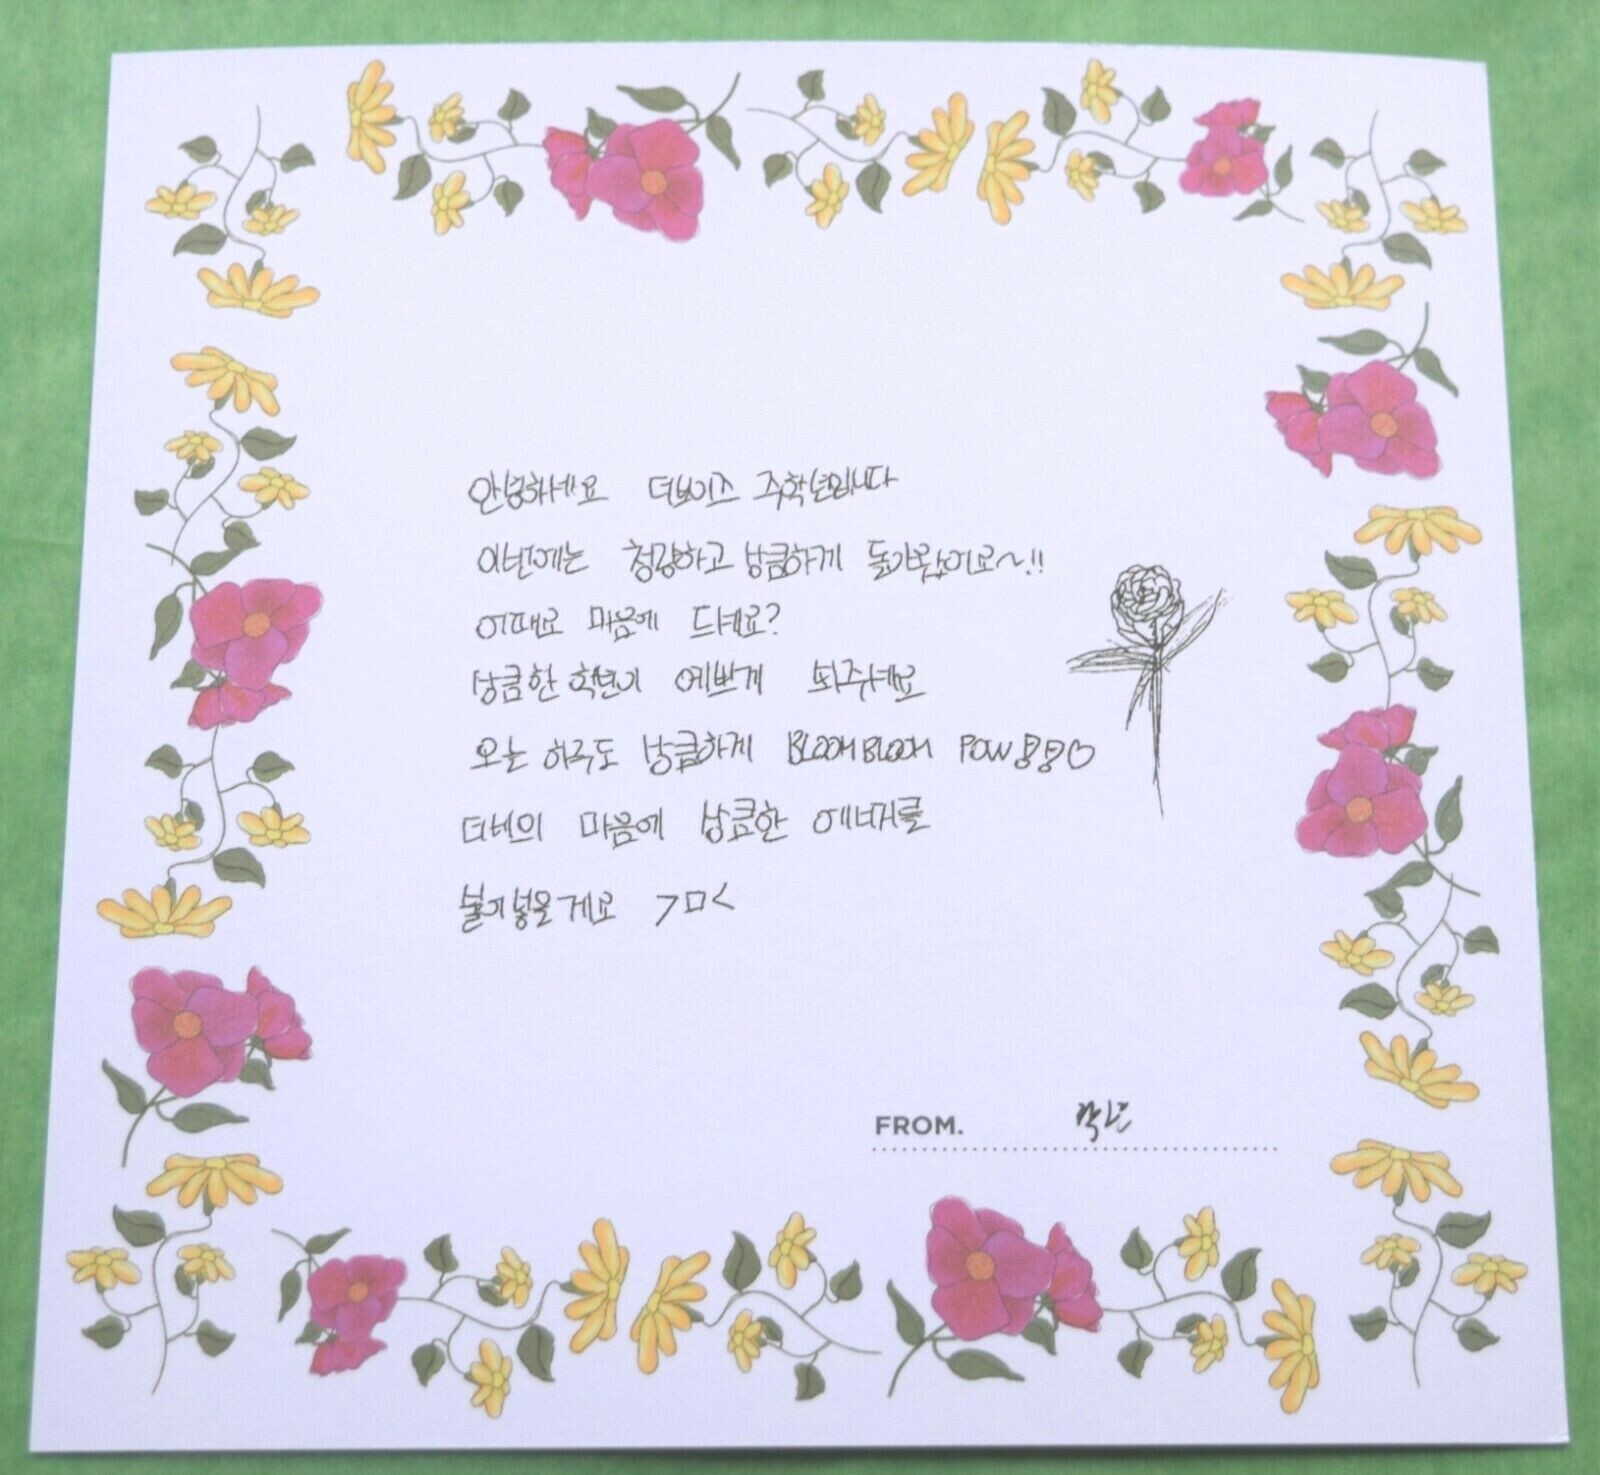 안녕하세요 더보이즈 주학년입니다
이번에는 청량하고 상큼하게 돌아왔어요~!!
어때요 마음에 드세요?
상큼한 학년이 예쁘게 봐주세요
오늘 하루도 상큼하게 BLOOM BLOOM POW 뿅뿅♡
더비의 마음에 상큼한 에너지를
불어넣을게요 >ㅁ<
FROM.